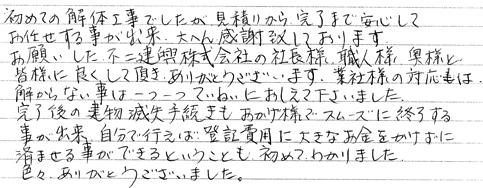 初めての解体工事でしたが見積りから完了まで安心して
お任せする事が出来、大へん感謝致しております。
お願いした不二建興株式会社の社長様、職人様、奥様と
皆様に良くして頂きありがとうございます。業社様の対応も
解からない事は一つ一つていねいにおしえて下さいました。
完了後の建物滅失手続きもおかげ様でスムーズに終了する
事が出来、自分で行えば登記費用に大きなお金をかけずに
済ませる事ができるということも初めてわかりました。
色々、ありがとうございました。